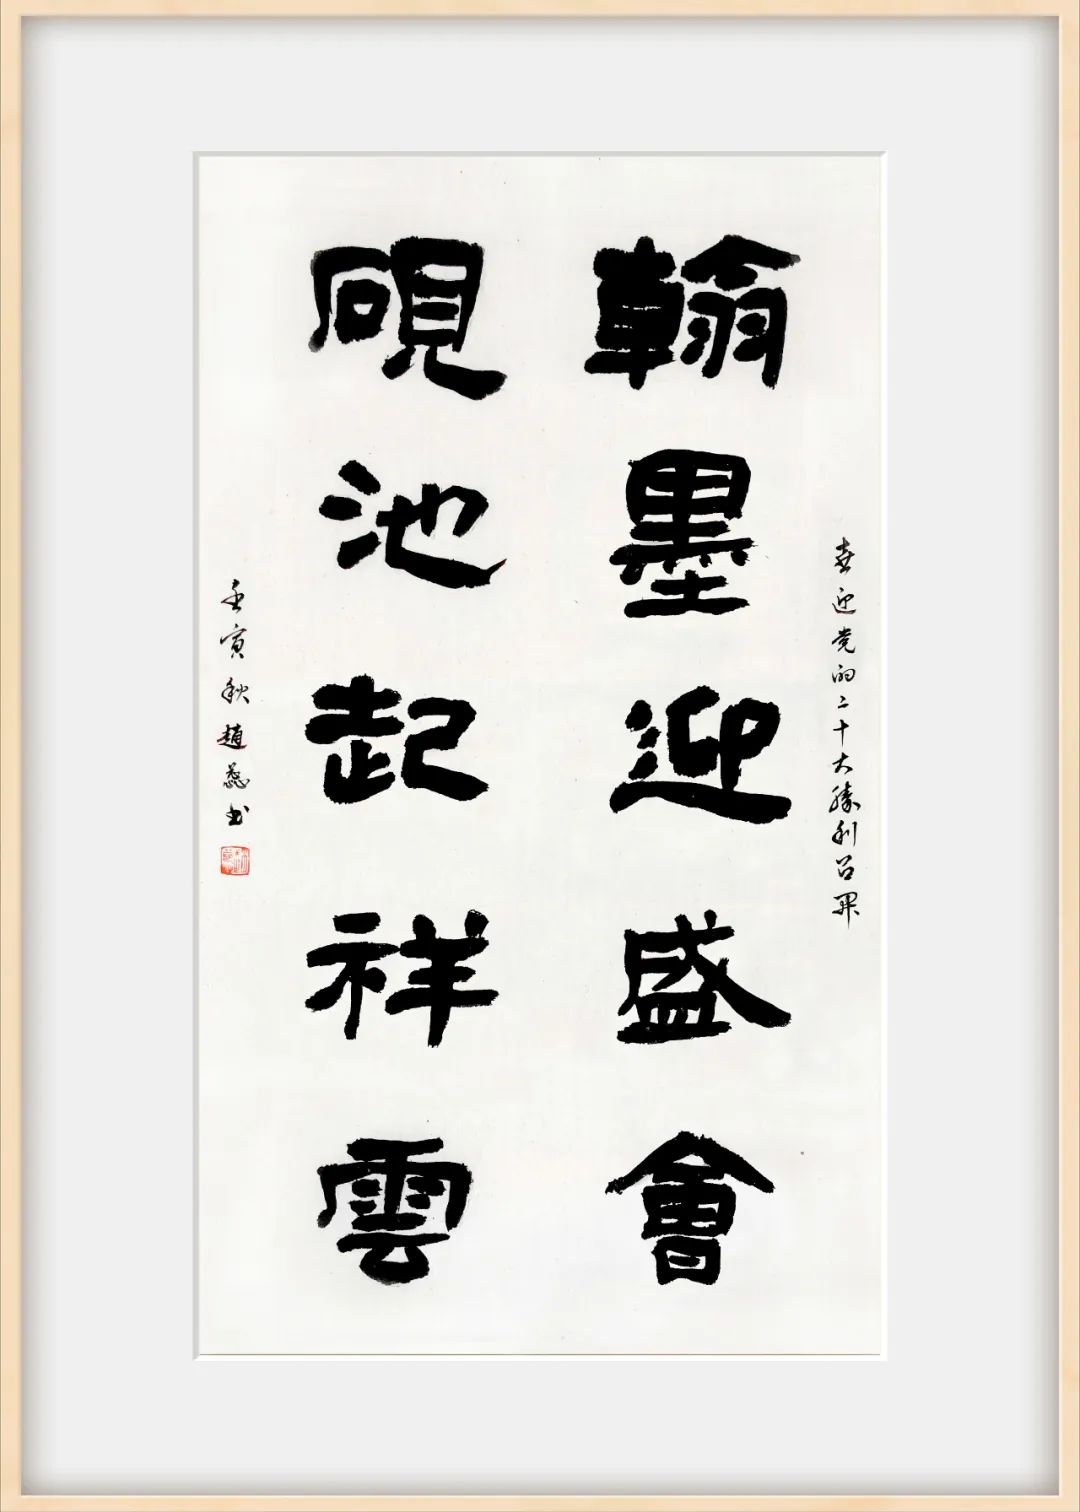 喜迎党的二十大勝利召開
翰墨迎盛會
硯池起祥雲
壬寅秋趙蕊书